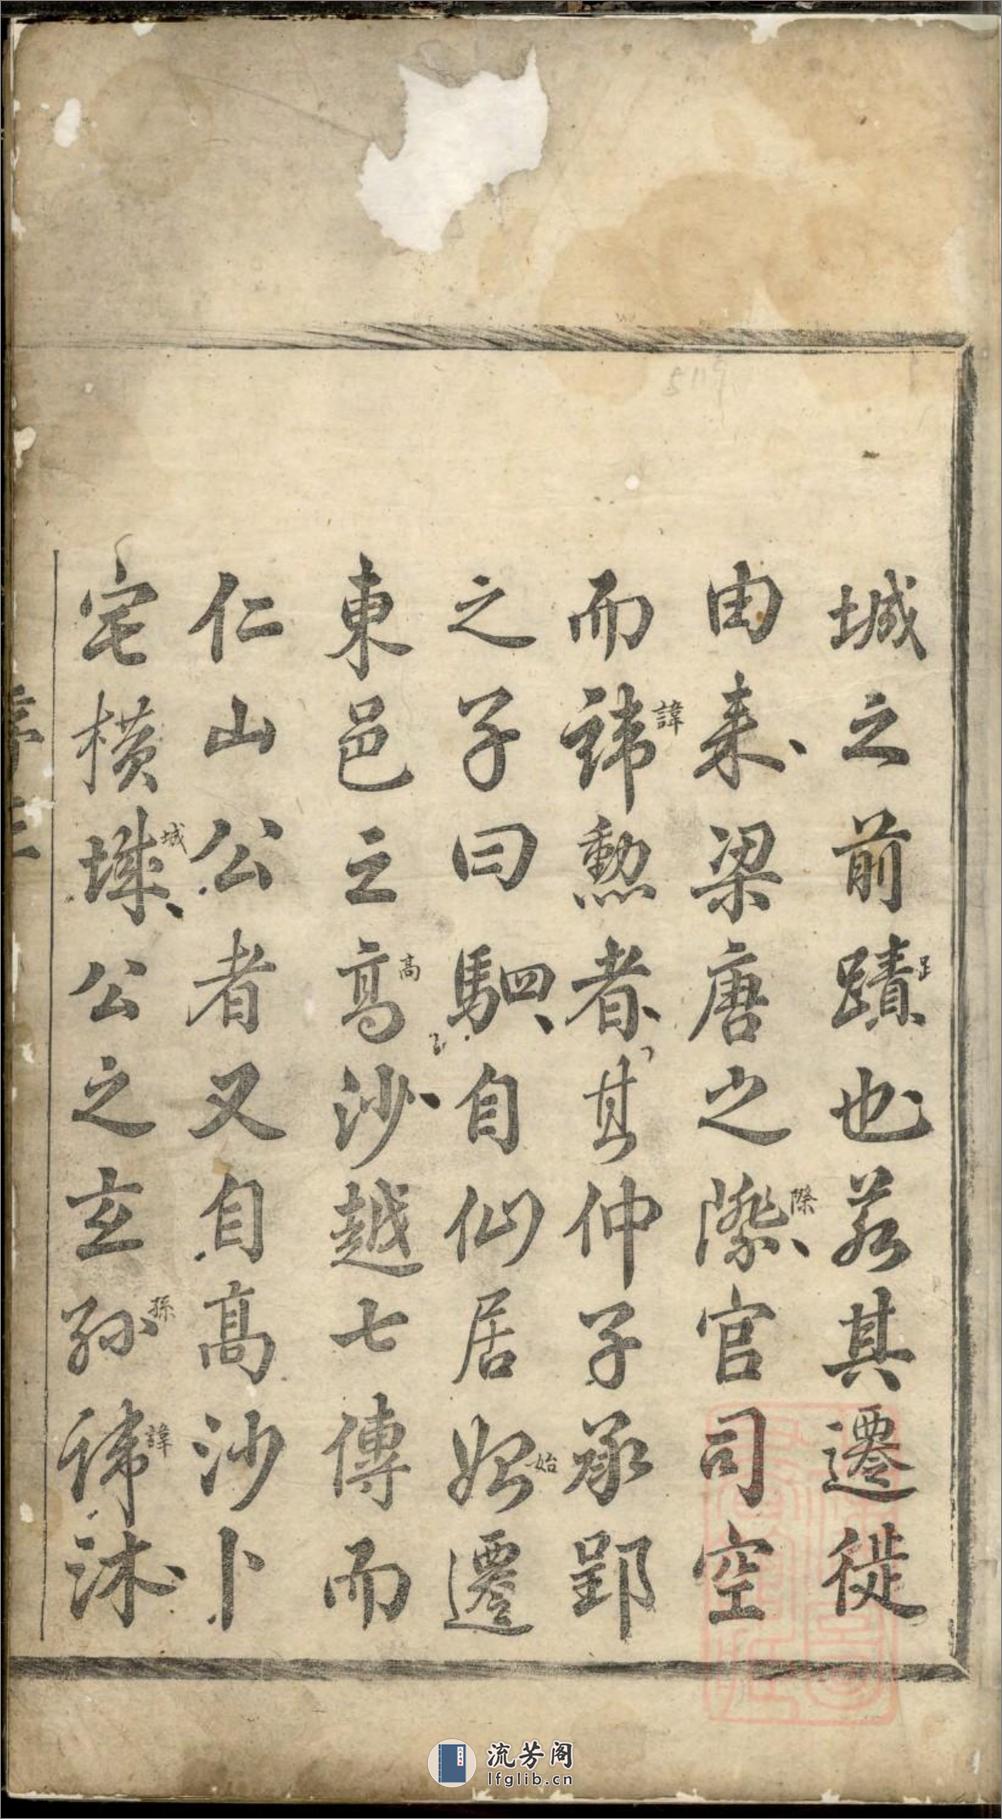 城之前蹟也若其遷徙
由来梁唐之際官司空
而諱勲者其仲子承郢
之子曰駟自仙居始遷
東邑之高沙越七傳而
仁山公者又自高沙卜
宅横城公之玄孫諱沐
諱
𧾷
際
高
始
城
孫
諱
5119
流芳阁
lfglib.cn